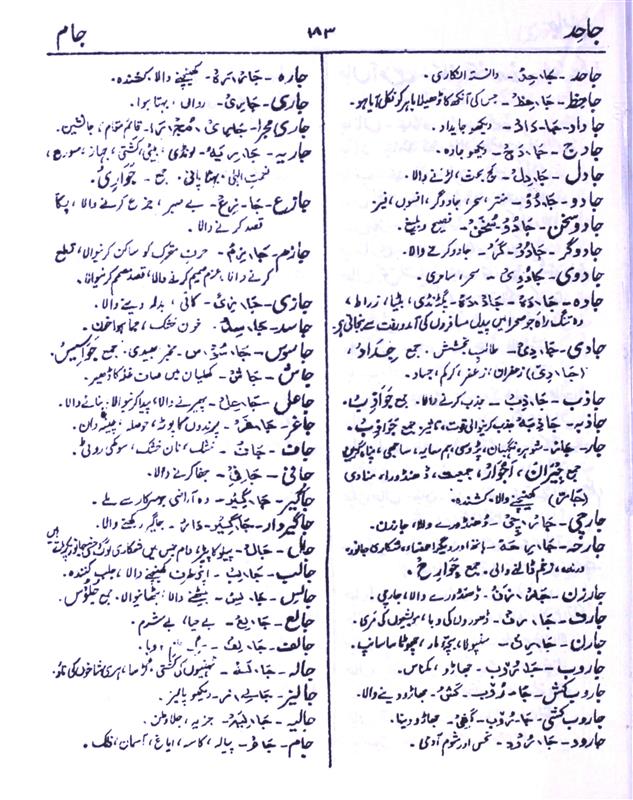 جاحد
۱۸۳
جام
جاحد - جَا۔حِدْ - دانستہ انکاری۔
جاحظ - جَا۔حِظْ - جس کی آنکھ کا ڈھیلا باہر کو نکل آیا ہو۔
جا داد - جَا۔دَادْ - دیکھو جایداد۔
جادج - جَا۔دَجْ - دیکھو جادہ۔
جادل - جَا۔دِلْ - کج بحث، لڑنے والا۔
جادو - جَا۔دُوْ - منتر، سحر، جادوگر، افسوں،
جادو سخن - جَا۔دُوْ سُخَنْ - فصیح و بلیغ۔
جادوگر - جَا۔دُوْ۔گَرْ - جادو کرنے والا۔
جادوی - جَا۔دُوِیْ - سحر، ساحری۔
جادہ - جَا۔دَہْ - جَادْدَہْ - پگڈنڈی، بٹیا،
وہ تنگ راہ جو صحرا میں پیدل مسافروں کی آمد و رفت سے بن جاتی ہے۔
جادی - جَا۔دِیْ - طالب بخشش۔ جمع
(جَا۔دِیْ) زعفران، زعفر، کرکم، جساد۔
جاذب - جَا۔ذِبْ - جذب کرنے والا۔ جمع جَوَاذِبْ۔
جاذبہ - جَا۔ذِبَہْ جذب کرنیوالی قوت، تاثیر جمع جَوَاذِبْ۔
جار - جَارْ - شوہر، نگہبان، پڑوسی، ہم سایہ، ساجھی، پناہ گزیں
جمع جِیْرَان، اَجْوَارْ، جمعیت، ڈھنڈورا، منادی
(جَارّ) کھینچنے والا، کشندہ۔
جارچی - جَا۔رْ۔چِیْ - ڈھنڈورے والا، جارزن۔
جارحہ - جَا۔رِحَہْ - ہاتھ اور دیگر اعضاء، شکاری جانور،
درندہ، زخم ڈالنے والی۔ جمع جَوَارِحْ۔
جارزن - جَارْ۔زَنْ - ڈھنڈورے والا، جارچی۔
جارف - جَا۔رِفْ - ڈھوروں کی وبا، مویشیوں کی مری۔
جارن - جَا۔رِنْ - سنپولا، بچۂ مار، چھوٹا سا سانپ۔
جاروب - جَا۔رُوْبْ - جھاڑو، مکناس۔
جاروب کش - جَا۔رُوْبْ۔کَشْ - جھاڑو دینے والا۔
جاروب کشی - جَا۔رُوْبْ۔کَشِیْ - جھاڑو دینا۔
جارود - جَا۔رُوْدْ - نحس اور شوم آدمی۔
جارہ - کھینچنے والا، کشندہ۔
جاری - جَا۔رِیْ - رواں، بہتا ہوا۔
جاری مجرا - جَا۔رِیْ، مُجْ۔رَا - قائم مقام، جانشین۔
جاریہ - جَا۔رِیَہْ - لونڈی، بیٹی، کشتی، جہاز، سورج،
نعمت الٰہی، بہتا پانی۔ جمع - جَوَارِیْ۔
جازع - جَا۔زِعْ - بے صبر، جزع کرنے والا، پکا
قصد کرنے والا۔
جازم - جَا۔زِمْ - حرف متحرک کو ساکن کرنیوالا، قطع
کرنے والا، عزم صمیم کرنے والا، قصد مصمم کرنیوالا۔
جازی - جَا۔زِیْ - کافی، بدلہ دینے والا۔
جاسد - جَا۔سِدْ - خون خشک، جما ہوا خون۔
جاسوس - جَا۔سُوْسْ - مخبر، بھیدی۔ جمع جَوَاسِیْسْ۔
جاش - جَاشْ - کھلیان میں صاف غلہ کا ڈھیر۔
جاعل - جَا۔عِلْ - پھیرنے والا، پیدا کرنیوالا، بنانے والا۔
جاغر - جَا۔غَرْ - پرندوں کا پوٹہ، حوصلہ، چینہ دان۔
جاف - جَافّ - خشک، نان خشک، سوکھی روٹی۔
جافی - جَا۔فِیْ - جفا کرنے والا۔
جاگیر - جَا۔گِیْرْ - وہ آراضی جو سرکار سے ملے۔
جاگیردار - جَا۔گِیْرْ۔دَارْ - جاگیر رکھنے والا۔
جال - جَالْ - پیلو کا پیڑ، دام جس میں شکاری لوگ وحشی جانور پکڑتے ہیں
جالب - جَا۔لِبْ - اپنی طرف کھینچنے والا، جلب کنندہ۔
جالس - جَا۔لِسْ - بیٹھنے والا، بٹھانیوالا۔ جمع جُلُوْسْ۔
جالع - جَا۔لِعْ - بے حیا، بے شرم۔
جالف - جَا۔لِفْ - وبا۔
جالہ - جَا۔لَہْ -
جالیز - جَا۔لِیْزْ - دیکھو پالیز۔
جالیہ - جَا۔لِیَہْ - جزیہ، جلا وطن۔
جام - جَامْ - پیالہ، کاسہ، ایاغ، آسمان، فلک۔